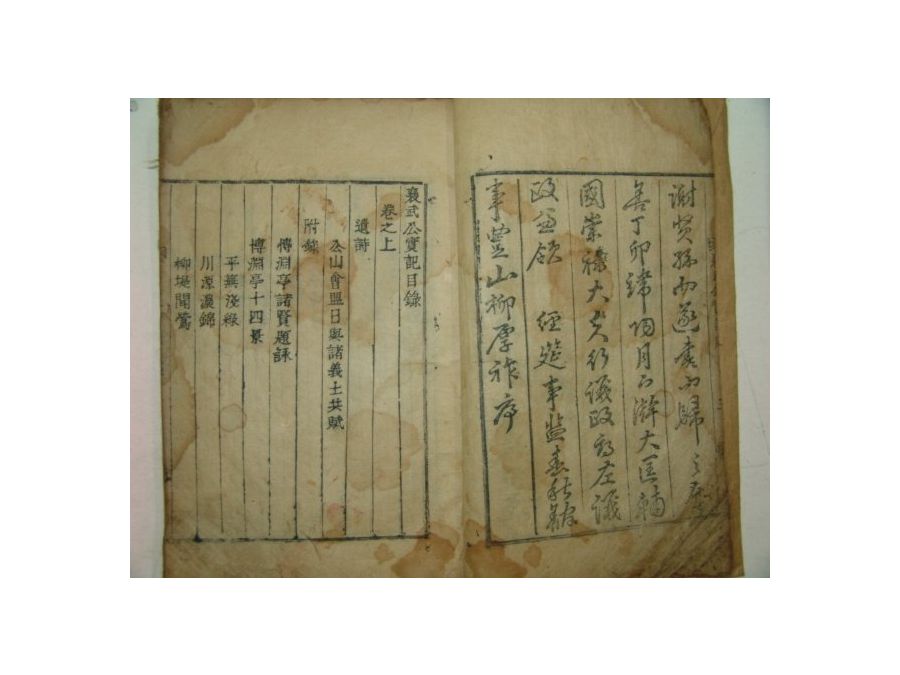 謝賢孫而遂書而歸之
善丁卯𬙊陽月下澣大匡輔
國崇祿大夫行議政府左議
政兼領 經筵事監春秋館
事豊山柳厚祚序
襄武公實記目錄
卷之上
遺詩
公山會盟日與諸義士共賦
附錄
博淵亭諸賢題詠
博淵亭十四景
平蕪淺綠
川源濃錦
柳堤聞鶯